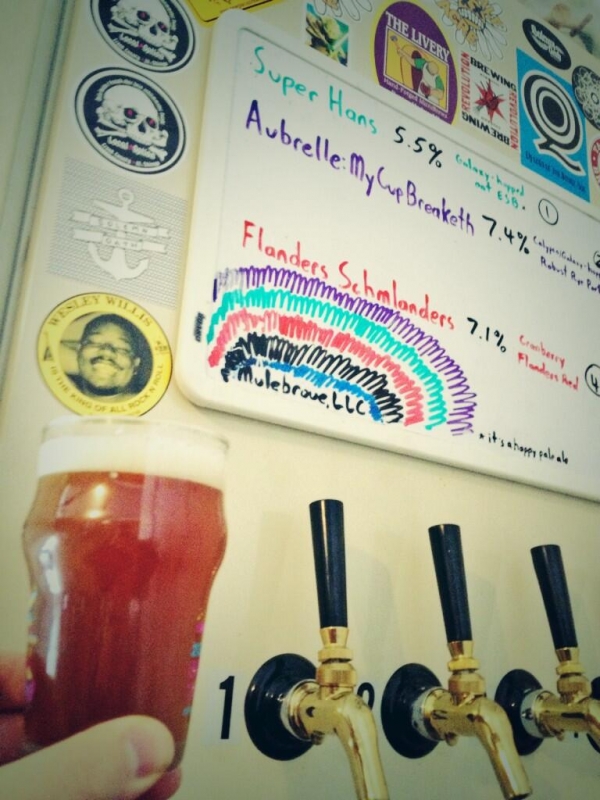 THE LIVERY
BREWING
REVOLUTION
BREWING
REVOLUTION
Super Hans 5.5% Galaxy-hopped
not ESB*
1
Aubrelle: My Cup Breaketh 7.4%
Robust Rye
Flanders Schmlanders 7.1% Cranberry
Flanders Red
4
Mulebrove, LLC
* it's a hoppy pale ale
WESLEY WILLIS
IS THE KING OF ALL ROCK N ROLL
1